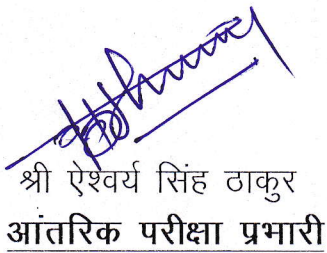 श्री ऐश्वर्य सिंह ठाकुर
आंतरिक परीक्षा प्रभारी